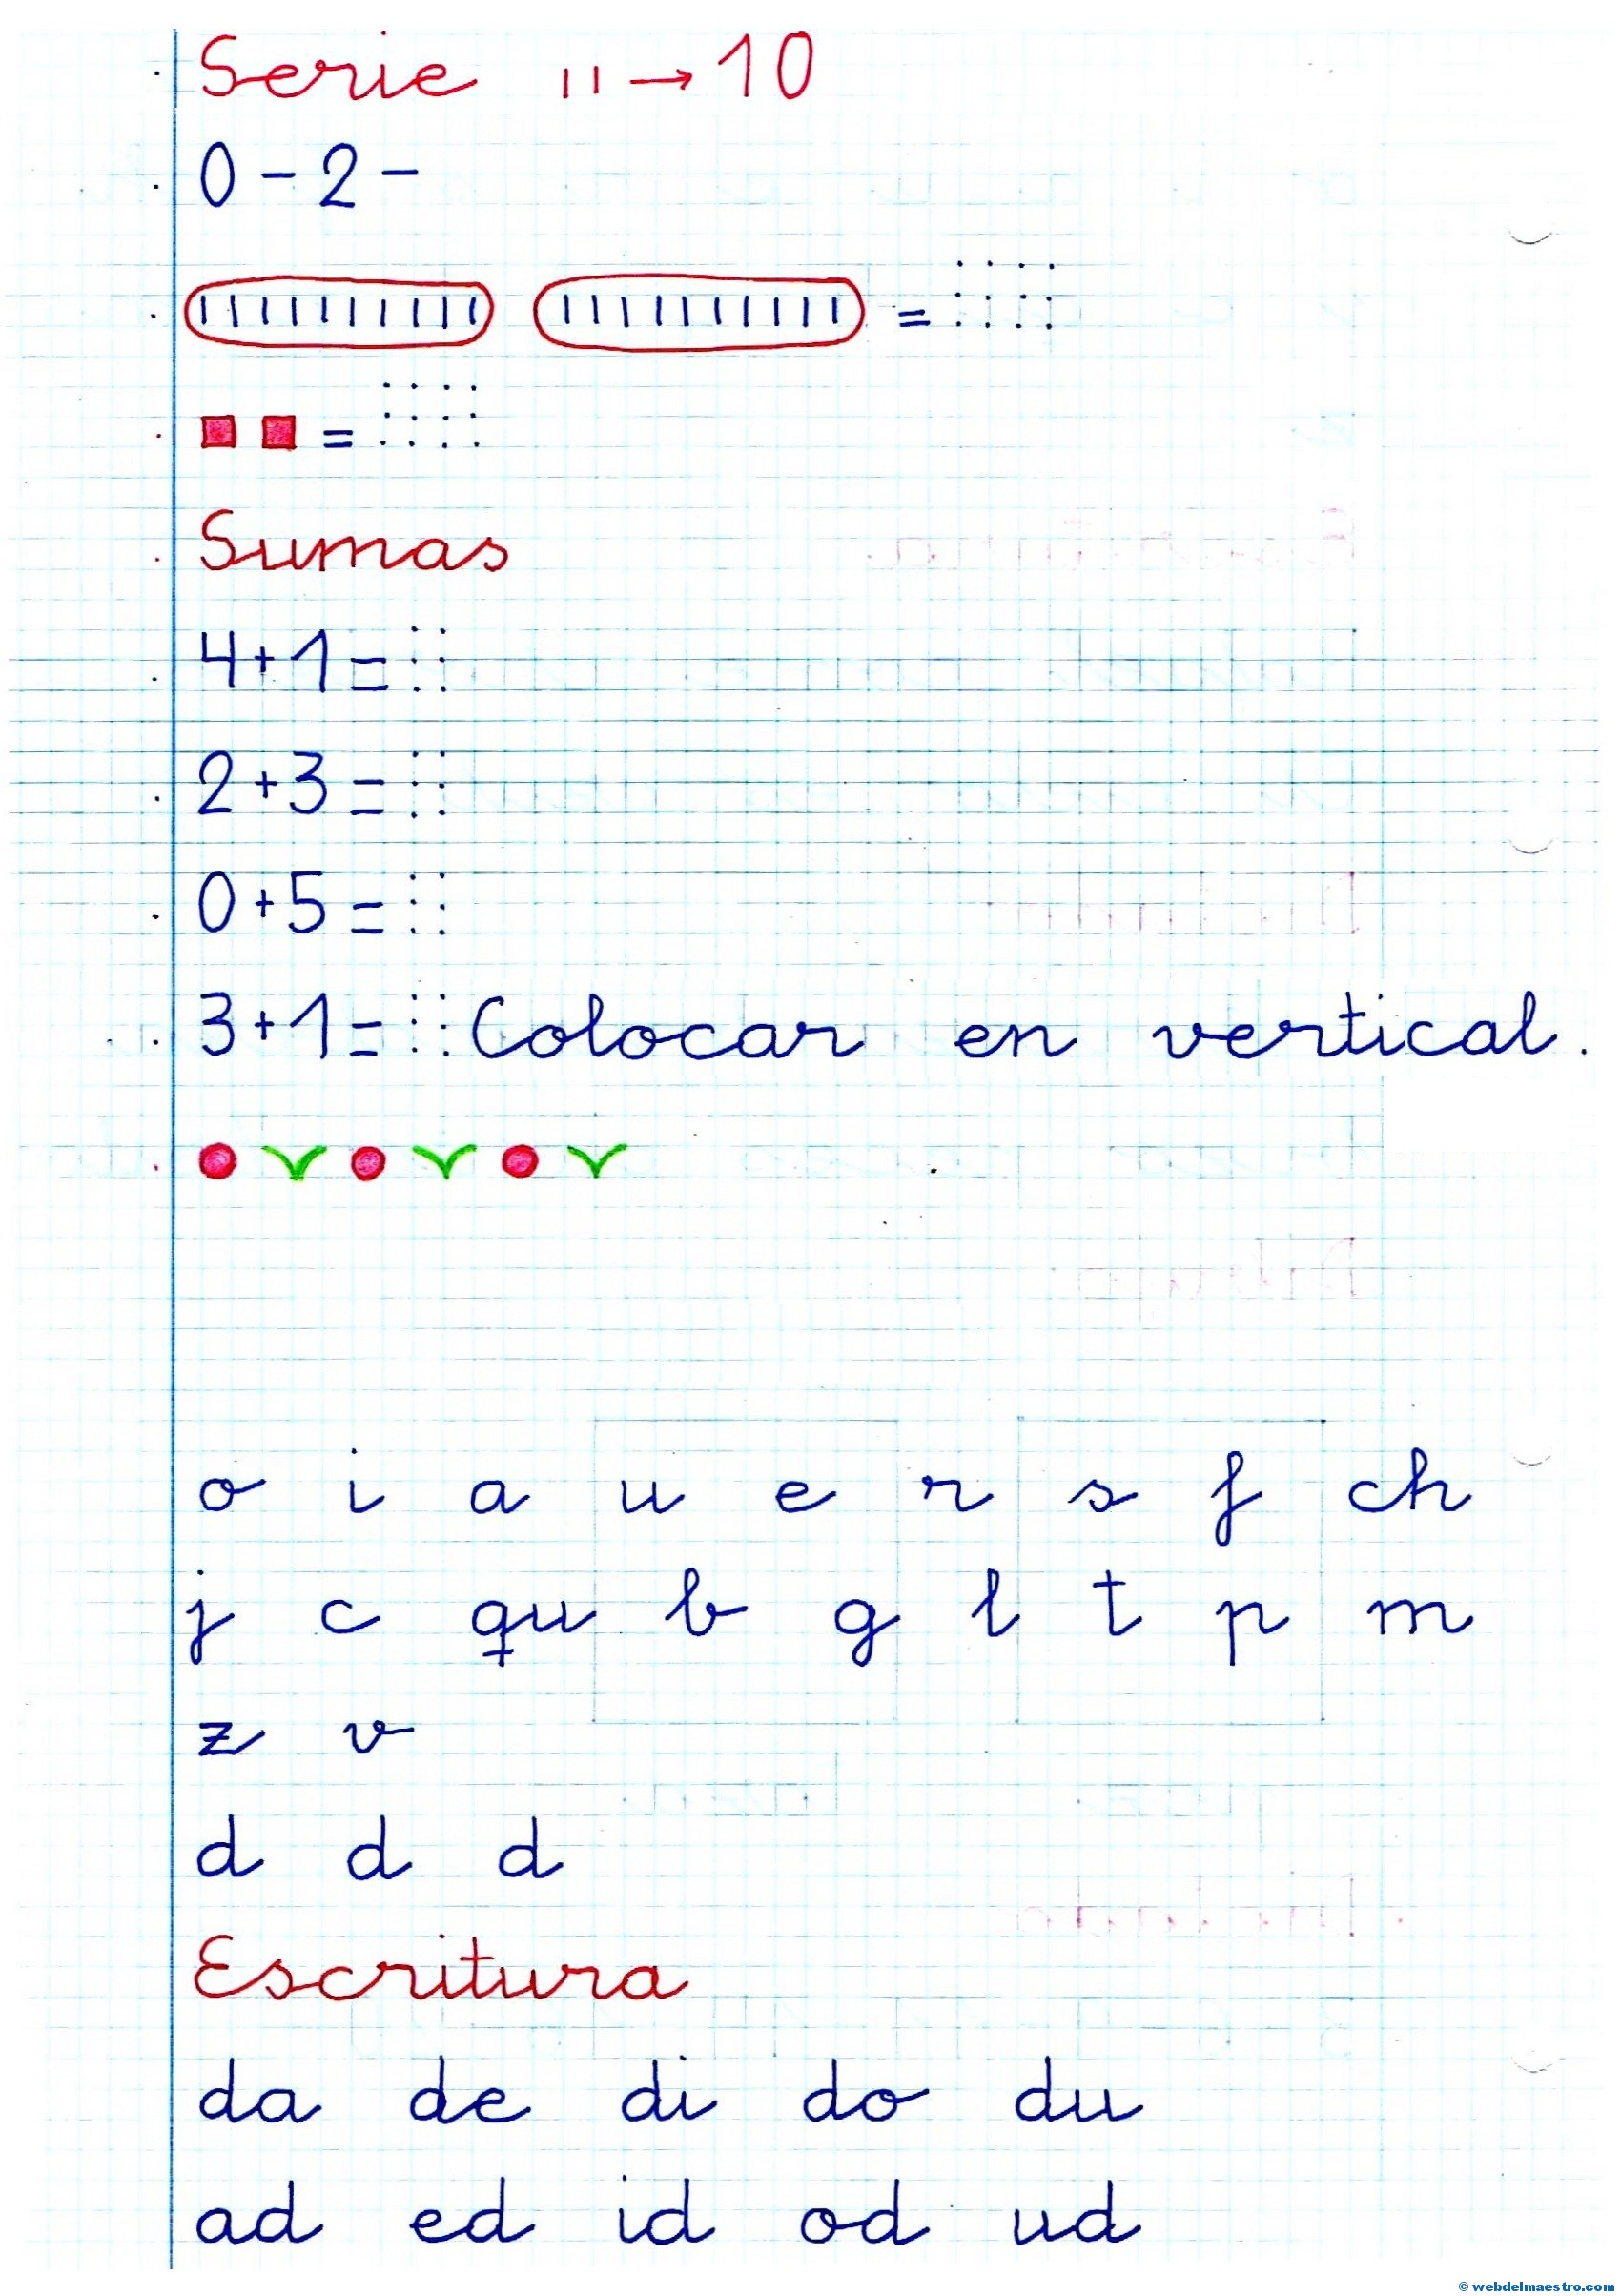 Serie 11 → 10
0 - 2 -
=
=
Sumas
4 + 1 =
2 + 3 =
0 + 5 =
3 + 1 = Colocar en vertical.
o i a u e r s f ch
j c qu b g l t p m
z v
d d d
Escritura
da de di do du
ad ed id od ud
© webdelmaestro.com